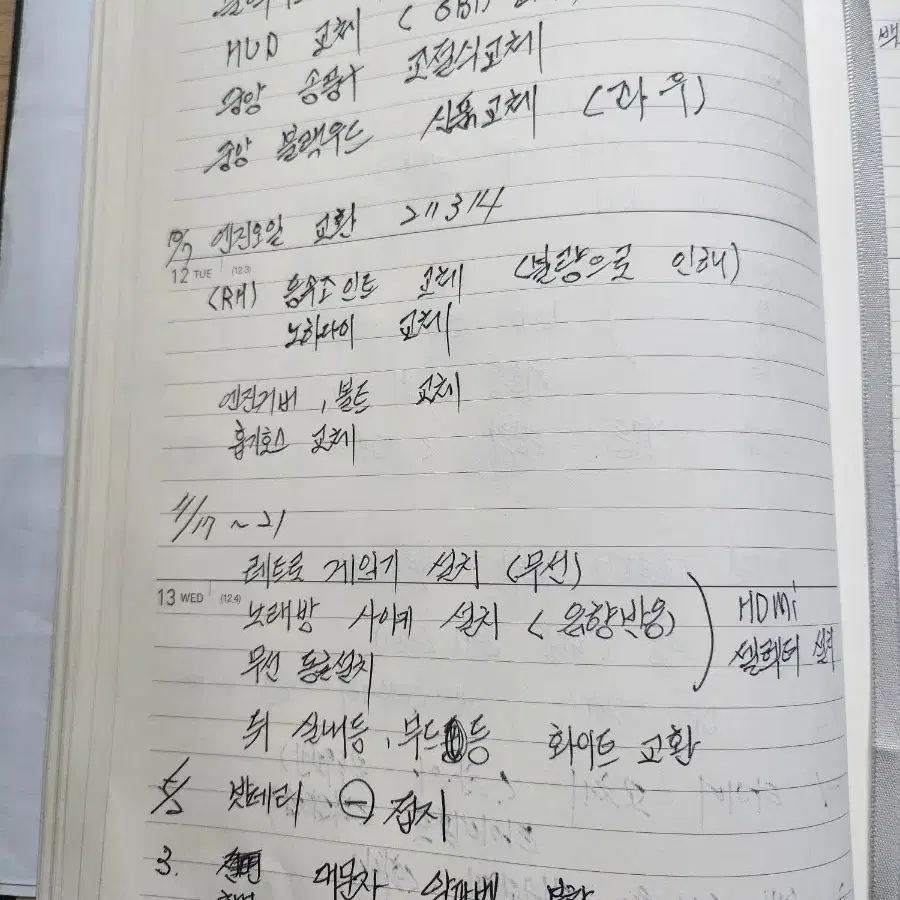 HUD 교체 (
중앙 송풍구 교절식교체
중앙 블랙우드 신품교체 (좌우)
엔진오일 교환 211314
12 TUE (12.3)
(RH) 등속조인트 교체 (불량으로 인해)
노하라이 교체
엔진커버, 볼트 교체
흡기호스 교체
4/17 ~ 21
레트로 게임기 설치 (무선)
13 WED (12.4)
노래방 사이키 설치 (음향반응)
HDMi
셀렉터 설치
무선 동글설치
뒤 실내등, 무드등 화이트 교환
밧데리 ⊖ 접지
3. 대문자